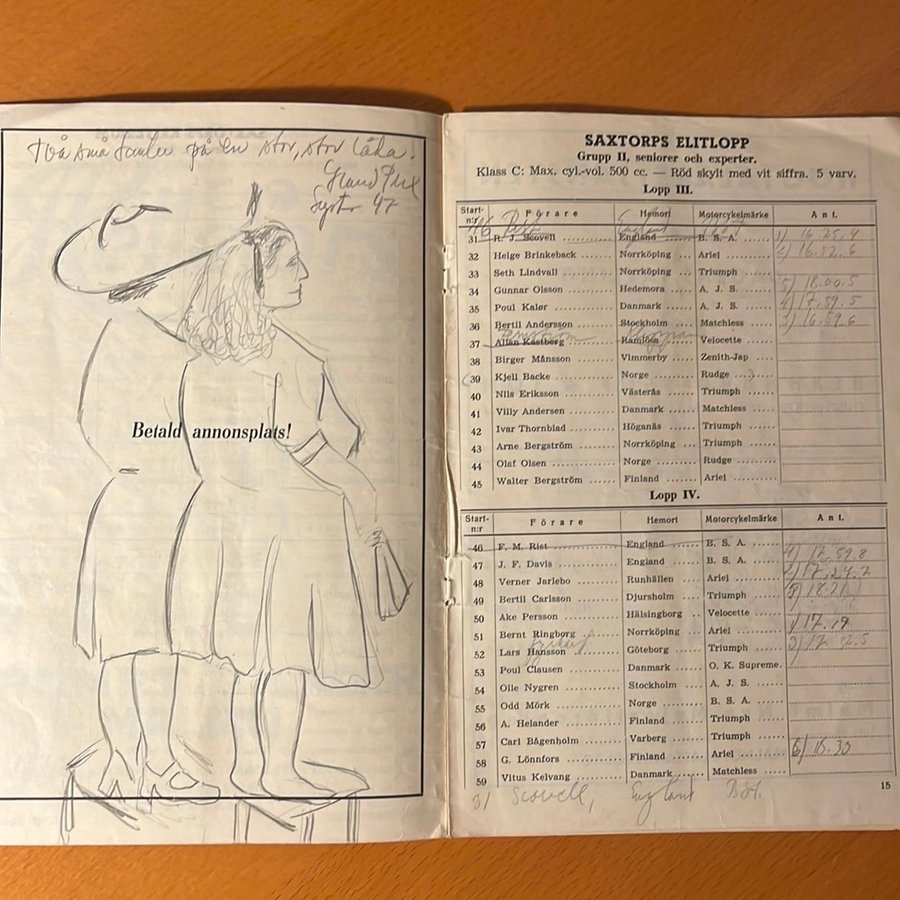 Två små damer på en stor, stor låda.
Grand Prix
47
Betald annonsplats!
SAXTORPS ELITLOPP
Grupp II, seniorer och experter.
Klass C: Max. cyl.-vol. 500 cc. — Röd skylt med vit siffra. 5 varv.
Lopp III.
Start-n:r Förare Hemort Motorcykelmärke Ant.
46 Rist England
31 R. J. Scovell England B. S. A. 1) 16.25.4
32 Helge Brinkeback Norrköping Ariel 2) 16.52.6
33 Seth Lindvall Norrköping Triumph
34 Gunnar Olsson Hedemora A. J. S. 5) 18.00.5
35 Poul Kalør Danmark A. J. S. 4) 17.59.5
36 Bertil Andersson Stockholm Matchless 3) 16.59.6
37 Allan Kastberg Ramlösa Velocette
38 Birger Månsson Vimmerby Zenith-Jap
39 Kjell Backe Norge Rudge
40 Nils Eriksson Västerås Triumph
41 Villy Andersen Danmark Matchless
42 Ivar Thornblad Höganäs Triumph
43 Arne Bergström Norrköping Triumph
44 Olaf Olsen Norge Rudge
45 Walter Bergström Finland Ariel
Lopp IV.
Start-n:r Förare Hemort Motorcykelmärke Ant.
46 F. M. Rist England B. S. A.
47 J. F. Davis England B. S. A. 4) 17.59.8
48 Verner Jarlebo Runhällen Ariel 17.24.2
49 Bertil Carlsson Djursholm Triumph 18.21
50 Åke Persson Hälsingborg Velocette
51 Bernt Ringborg Norrköping Ariel 1) 17.19
52 Lars Hansson Göteborg Triumph 3) 17
53 Poul Clausen Danmark O. K. Supreme.
54 Olle Nygren Stockholm A. J. S.
55 Odd Mörk Norge B. S. A.
56 A. Helander Finland Triumph
57 Carl Bågenholm Varberg Triumph
58 G. Lönnfors Finland Ariel 6)
59 Vitus Kelvang Danmark Matchless
31 Scovell, England BSA.
15